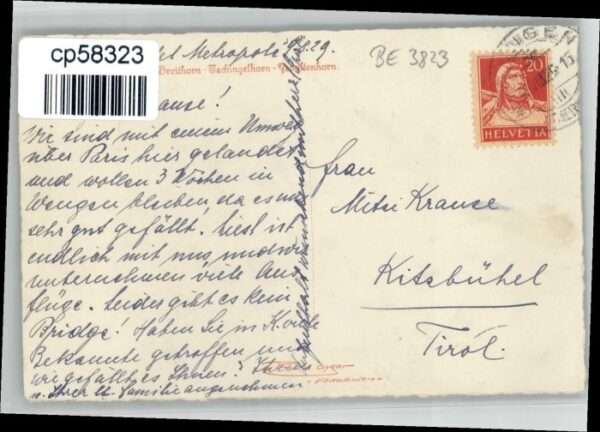 cp58323
Metropol
29.
BE 3823
Breithorn - Tschingelhorn -
ause!
Wir sind mit einem Umweg
über Paris hier gelandet
und wollen 3 Wochen in
Wengen bleiben, da es uns
sehr gut gefällt. Liesl ist
endlich mit uns, und wir
unternehmen viele Aus
flüge. Leider gibt es kein
Bridge! Haben Sie in K.
Bekannte getroffen und
wie gefällt es Ihnen?
u. Ihrer lb. Familie angenehmen
Frau
Mitzi Krause
Kitzbühel
Tirol.
20
HELVETIA
NGEN